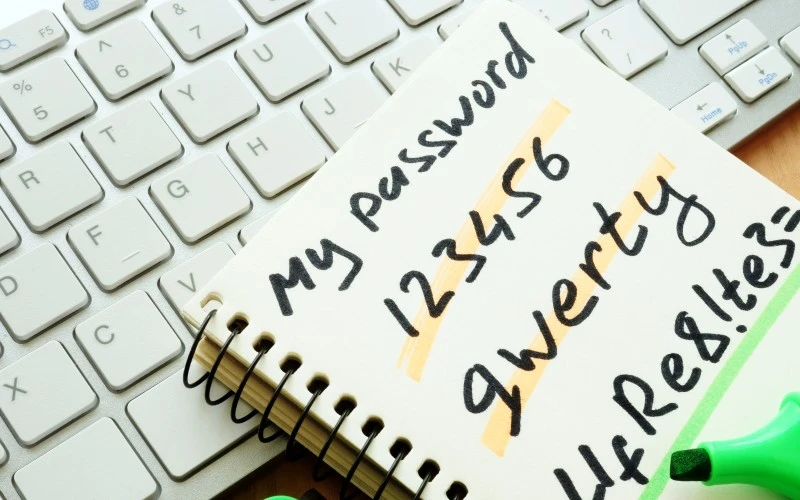 F5
&
7
^
6
%
5
U
I
Y
K
T
J
R
H
G
F
D
V
C
X
?
/
PgUp
PgDn
Home
My password
123456
qwerty